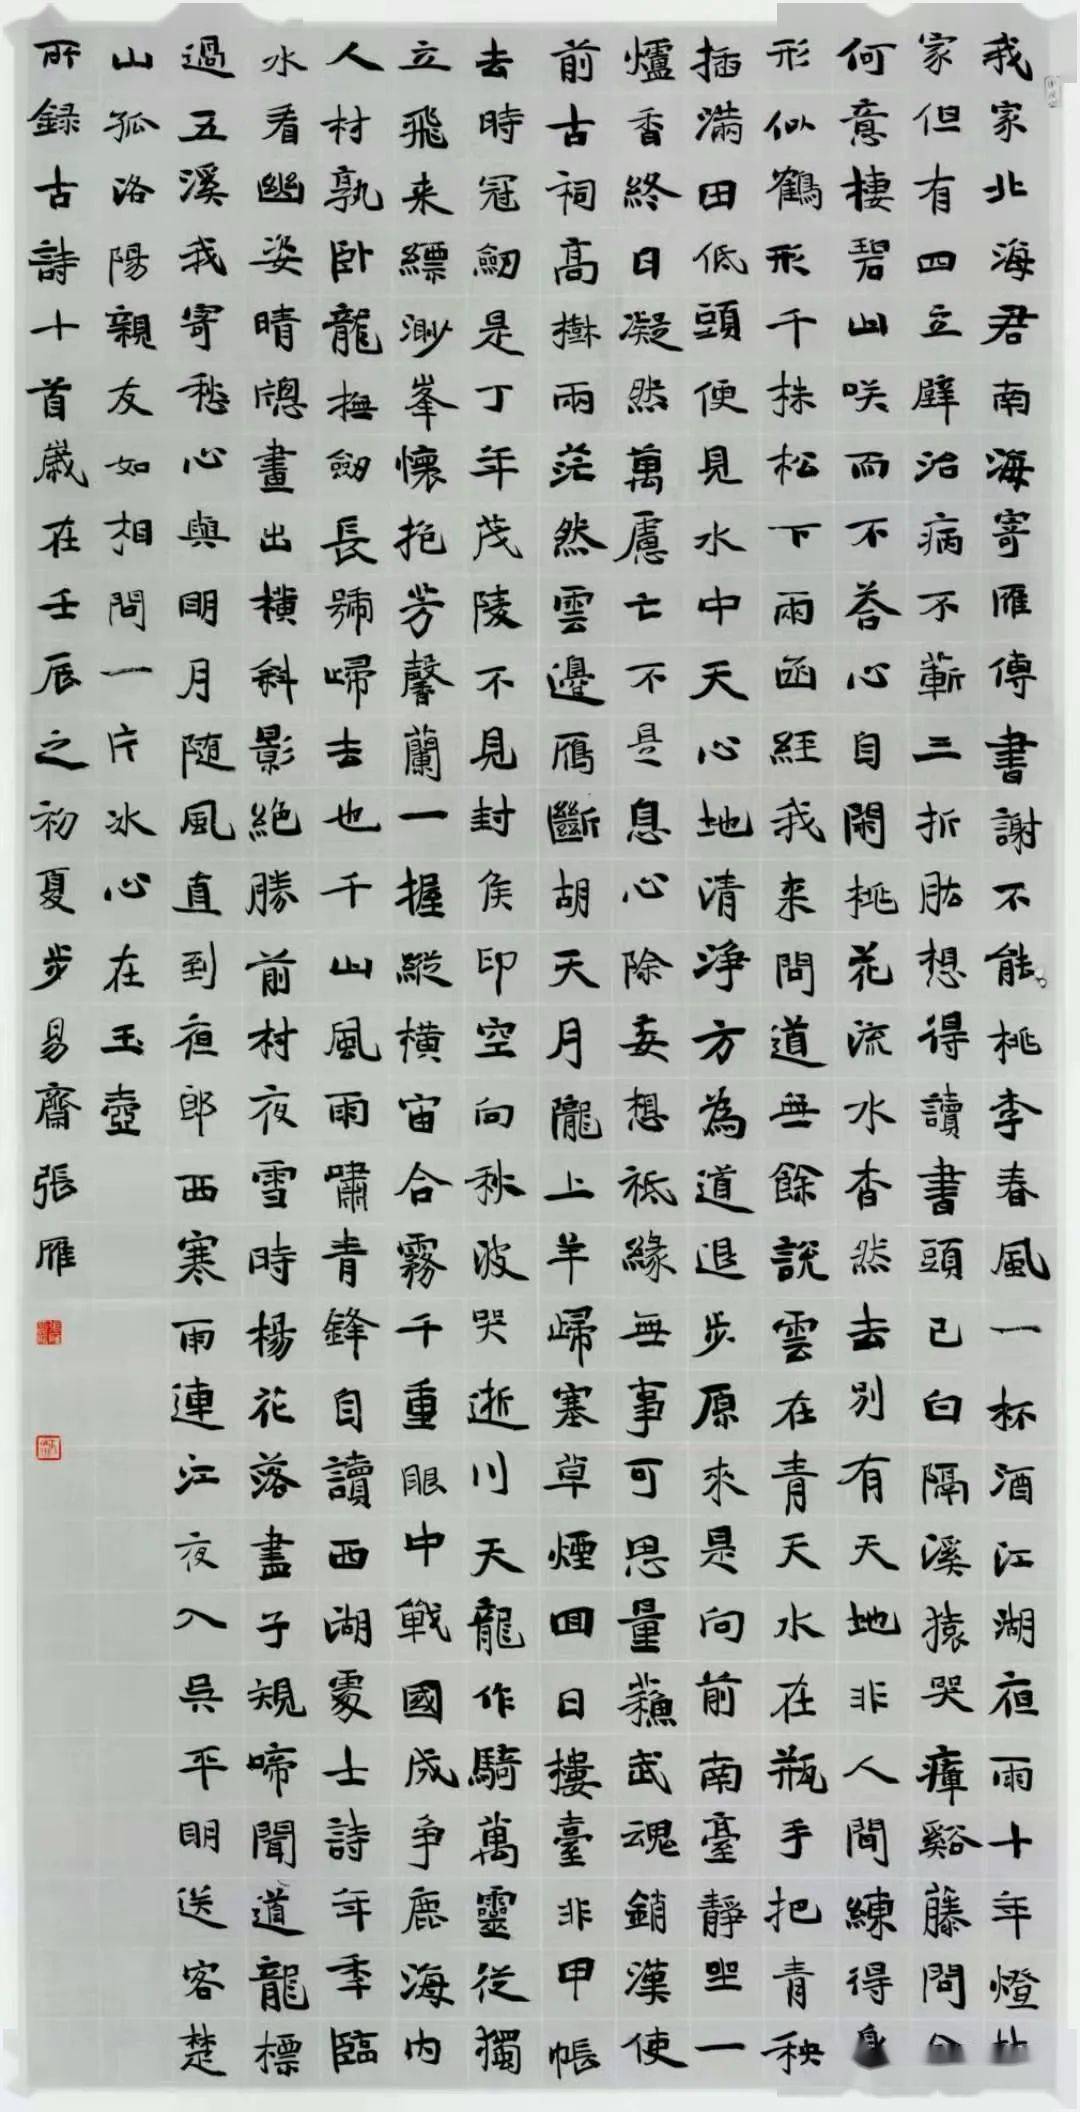 我家北海君南海寄雁傳書謝不能桃李春風一杯酒江湖夜雨十年燈
家但有四立壁治病不蘄三折肱想得讀書頭已白隔溪猿哭瘴谿藤問
何意棲碧山咲而不荅心自閑桃花流水杳然去別有天地非人間練得身
形似鶴形千株松下兩函經我来問道無餘說雲在青天水在瓶手把青秧
插滿田低頭便見水中天心地清淨方為道退步原來是向前南臺靜坐一
爐香終日凝然萬慮亡不是息心除妄想祗緣無事可思量蘓武魂銷漢使
前古祠高樹兩茫然雲邊鴈斷胡天月隴上羊歸塞草煙回日樓臺非甲帳
去時冠劒是丁年茂陵不見封侯印空向秋波哭逝川天龍作騎萬靈從獨
立飛来縹渺峯懷抱芳馨蘭一握縱橫宙合霧千重眼中戰國成争鹿海内
人材孰卧龍撫劒長號歸去也千山風雨嘯青鋒自讀西湖處士詩年季臨
水看幽姿晴窗畫出橫斜影絶勝前村夜雪時楊花落盡子規啼聞道龍標
過五溪我寄愁心與明月随風直到夜郎西寒雨連江夜入吳平明送客楚
山孤洛陽親友如相問一片冰心在玉壺
所録古詩十首歲在壬辰之初夏步易齋張雁